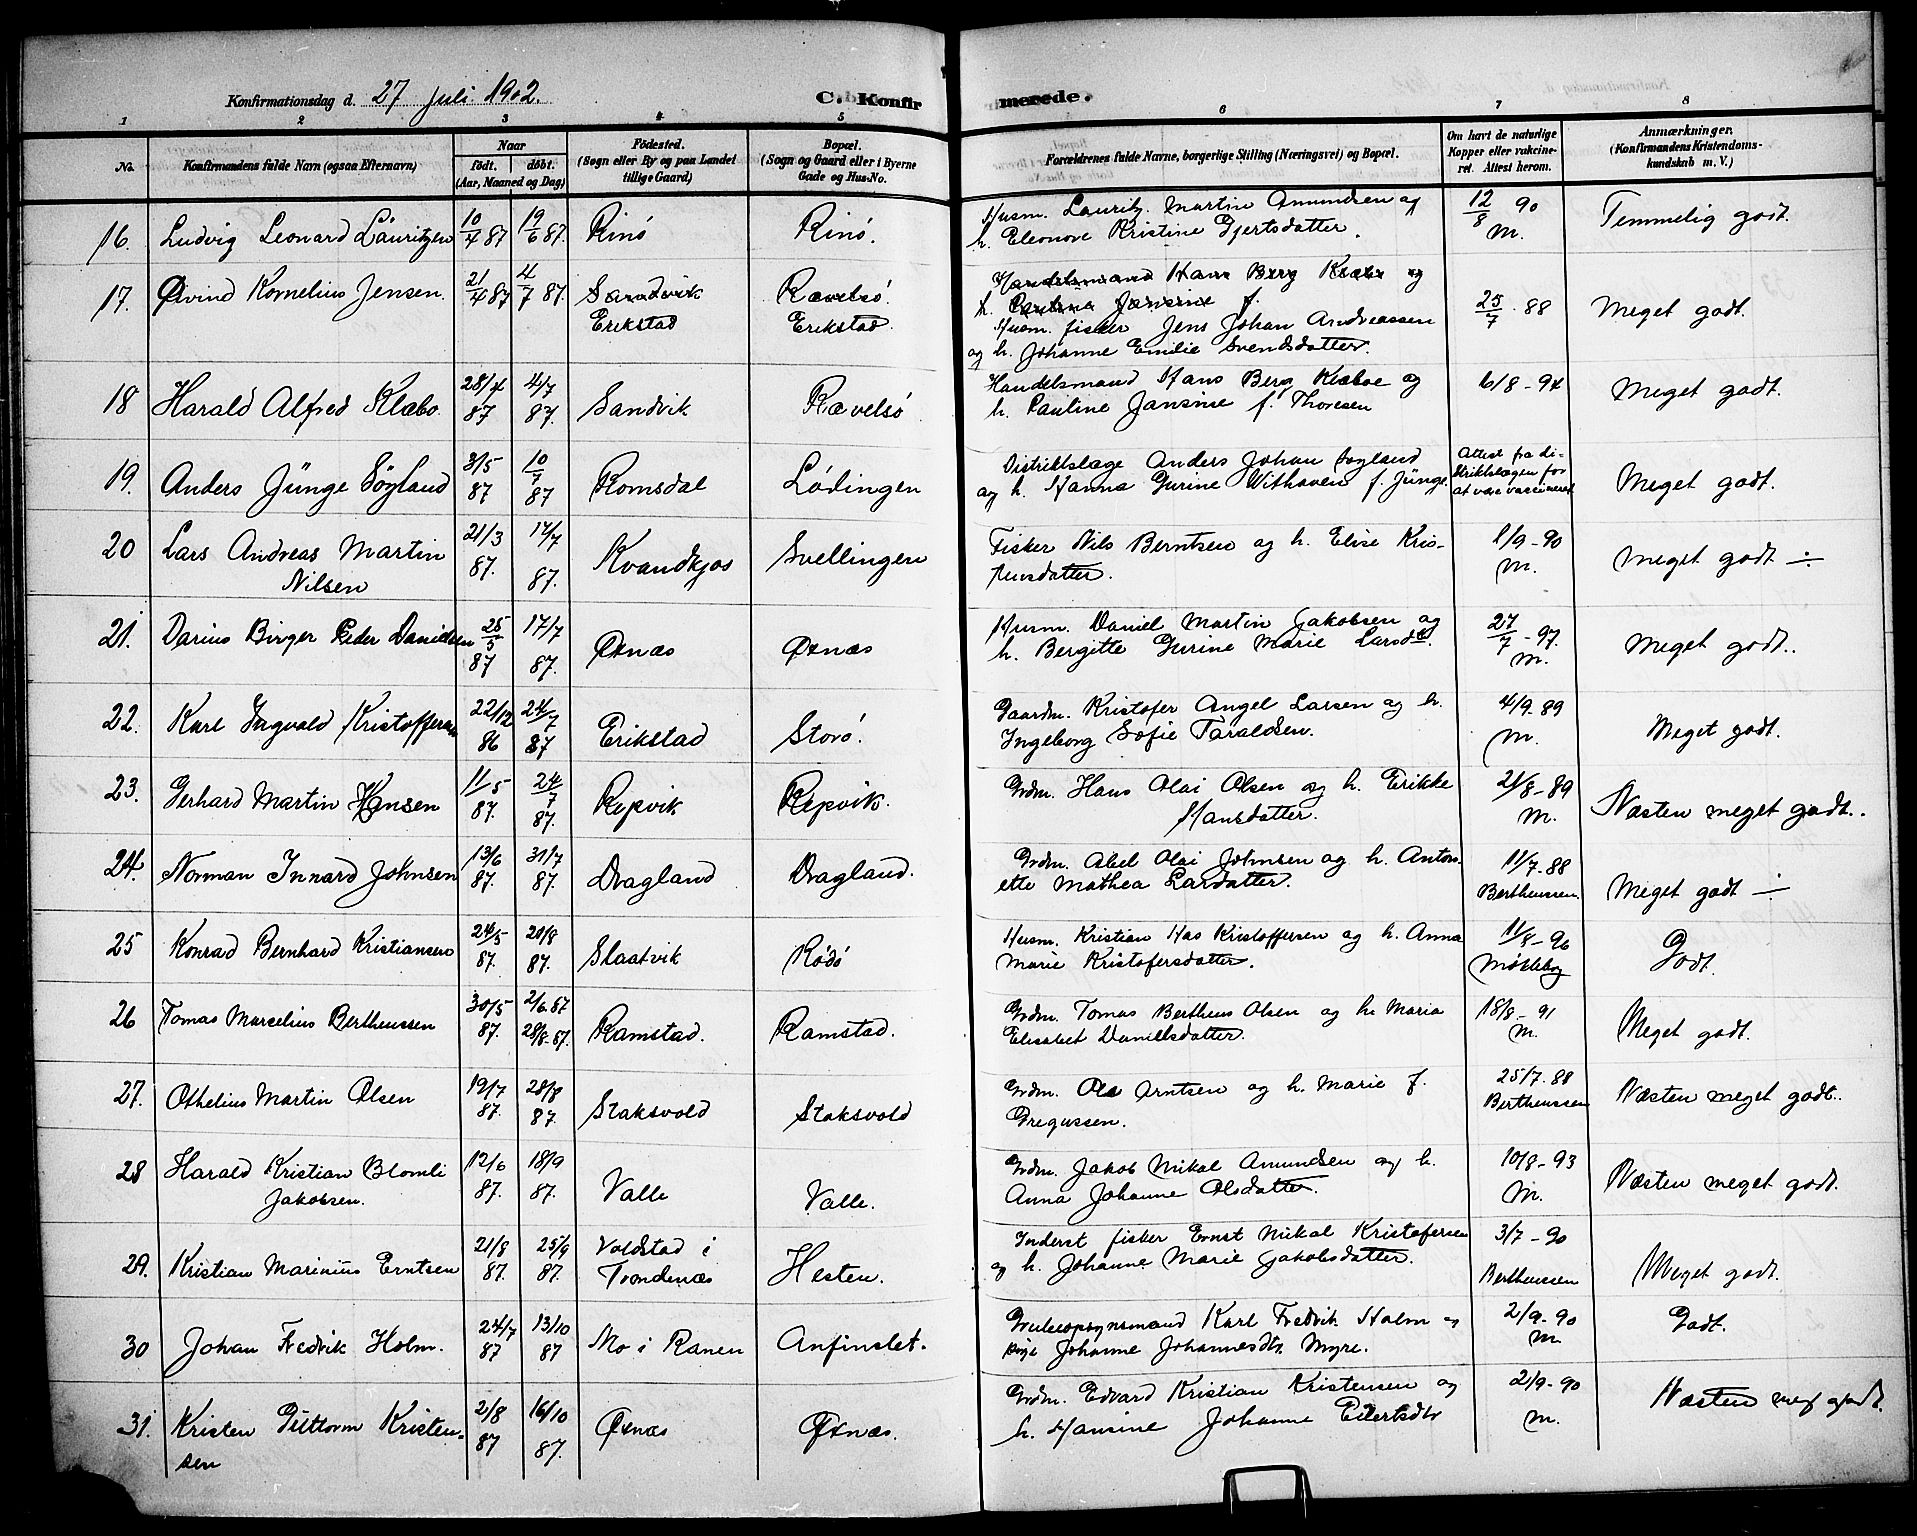 Konfirmationsdag d. 27 Juli 1902. C. Konfirmerede.
1 2 3 4 5 6 7 8
No. Konfirmandens fulde Navn (ogsaa Efternavn) Naar født. døbt. (Aar, Maaned og Dag) Fødested. (Sogn eller By og paa Landet tillige Gaard) Bopæl. (Sogn og Gaard eller i Byerne Gade og Hus-No. Forældrenes fulde Navne, borgerlige Stilling (Næringsvei) og Bopæl. Om havt de naturlige Kopper eller vaccineret. Attest herom. Anmærkninger. (Konfirmandens Kristendomskundskab m. V.)
16. Ludvig Leonard Lauritzen 10/4 87 19/6 87. Rinø Rinø. Husm. Lauritz Martin Amundsen og
h. Eleonore Kristine Gjertsdatter. 12/8 90 M. Temmelig godt.
17. Øivind Kornelius Jensen. 21/4 87 4/7 87. Sandvik Rævelsø Handelsmand Hans Berg Klæbo og
h. Pautine Jansine f.
Erikstad Erikstad. Husm. fisker Jens Johan Andreassen 25/7 88 Meget godt.
og h. Johanne Emilie Svendsdatter.
18 Harald Alfred Klæbo. 28/4 87 4/7 87. Sandvik Rævelsø Handelsmand Hans Berg Klæboe og
h. Pauline Jansine f. Thoresen 6/8-94 Meget godt.
19. Anders Jünge Søyland 31/5 87 10/7 87 Romsdal Lødingen Distriktslæge Anders Johan Søyland
og h. Hanna Gurine Withaven f. Jünge. Attest fra distriktslægen for at være vaccineret Meget godt.
20 Lars Andreas Martin
Nilsen 21/3 87. 17/7 87. Kvandkjos Svellingen Fisker Nils Berntsen og h. Elise Kristensdatter. 1/9-90 M. Meget godt ÷
21. Darius Birger Peder Danielsen 25/5 87 17/7 87. Øxnæs Øxnæs Husm. Daniel Martin Jakobsen og
h. Bergitte Gurine Marie Larsdtr. 27/7-97. M. Meget godt..
22. Karl Ingvald Kristoffersen 22/12 86 24/7 87 Erikstad Storø. Gaardm. Kristofer Angel Larsen og h.
Ingeborg Sofie Taraldsen. 4/9-89 M. Meget godt.
23. Gerhard Martin Hansen 11/5 87. 24/7 87. Repvik Repvik. Grdm. Hans Olai Olsen og h. Erikke
Hansdatter. 21/8-89 M. Næsten meget godt..
24. Norman Innard Johnsen 13/6 87. 31/7 87. Dragland Dragland. Grdm. Abel Olai Johnsen og h. Antonette
Mathea Larsdatter. 11/7-88 Bertheussen. Meget godt ÷
25 Konrad Bernhard Kristiansen 24/5 87. 20/8 87. Slaatvik Rødø Husm. Kristian Has Kristoffersen og h. Anna
Marie Kristofersdatter. 11/8-96 Møklebog Godt.
26 Tomas Marcelius Bertheussen 30/5 87. 2/6.87 28/8-87. Ramstad. Ramstad. Grdm. Tomas Bertheus Olsen og h. Maria
Elisabet Danielsdatter. 18/8-91 M. Meget godt.
27. Othelius Martin Olsen 19/7 87. 28/8 87. Staksvold Staksvold Grdm. Ole Arntsen og h. Marie f.
Gregussen. 25/7.88 Bertheussen Næsten meget godt..
28 Harald Kristian Blomli
Jakobsen. 12/6 87. 18/9 87. Valle Valle. Grdm. Jakob Mikal Amundsen og h.
Anna Johanne Olsdatter. 10/8-93 M. Næsten meget godt.
29. Kristian Marinius Erntsen 21/8 87. 25/9 87. Voldstad i
Trondenæs Hesten. Inderst fisker Ernst Mikal Kristofersen
og h. Johanne Marie Jakobsdatter. 3/7-90 Bertheussen Meget godt.
30 Johan Fredrik Holm. 24/7 87 13/10 87 Mo i Ranen Anfinslet. Grubeopsynsmand Karl Fredrik Holm og
pige Johanne Johannesdtr. Myre. 2/9-90 M. Godt.
31. Kristen Guttorm Kristensen 2/8 87 16/10 87. Øxnæs Øxnæs. Grdm. Edvard Kristian Kristensen og
h. Hansine Johanne Eilertsdtr 2/9-90 M. Næsten meg godt.